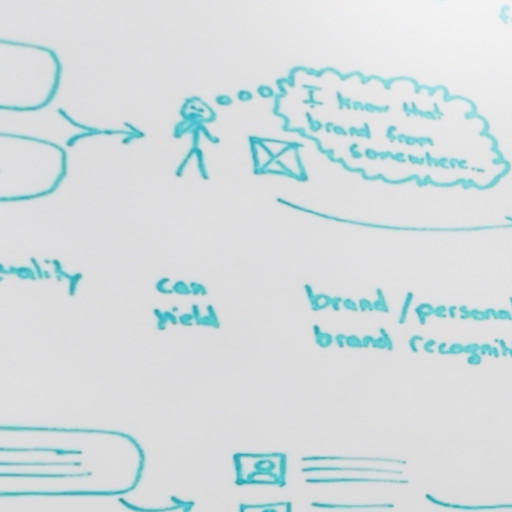 I know that
brand from
somewhere...
can
yield
brand / personal
brand recognit